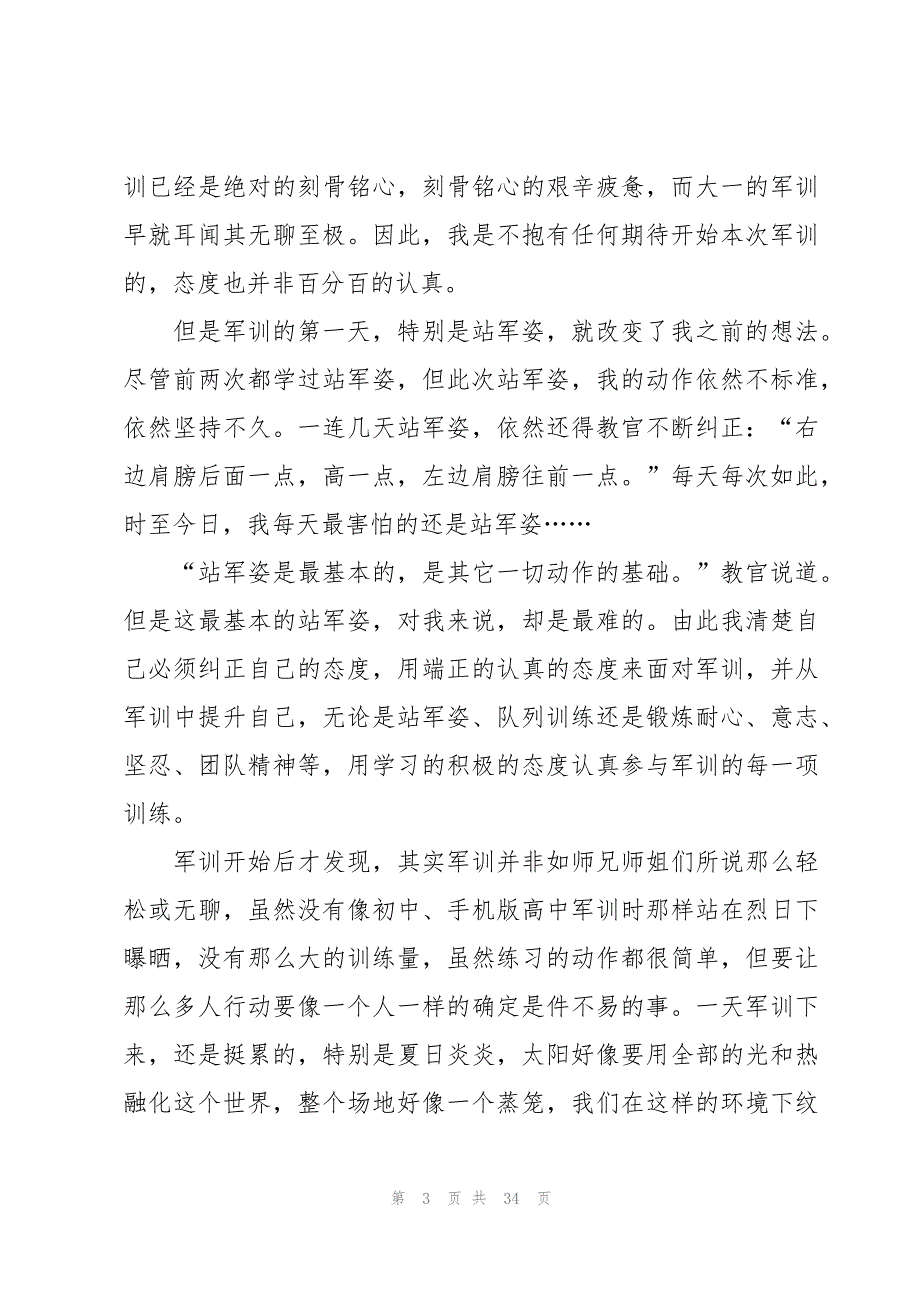 训已经是绝对的刻骨铭心，刻骨铭心的艰辛疲惫，而大一的军训
早就耳闻其无聊至极。因此，我是不抱有任何期待开始本次军训
的，态度也并非百分百的认真。
但是军训的第一天，特别是站军姿，就改变了我之前的想法。
尽管前两次都学过站军姿，但此次站军姿，我的动作依然不标准，
依然坚持不久。一连几天站军姿，依然还得教官不断纠正：“右
边肩膀后面一点，高一点，左边肩膀往前一点。”每天每次如此，
时至今日，我每天最害怕的还是站军姿……
“站军姿是最基本的，是其它一切动作的基础。”教官说道。
但是这最基本的站军姿，对我来说，却是最难的。由此我清楚自
己必须纠正自己的态度，用端正的认真的态度来面对军训，并从
军训中提升自己，无论是站军姿、队列训练还是锻炼耐心、意志、
坚忍、团队精神等，用学习的积极的态度认真参与军训的每一项
训练。
军训开始后才发现，其实军训并非如师兄师姐们所说那么轻
松或无聊，虽然没有像初中、手机版高中军训时那样站在烈日下
曝晒，没有那么大的训练量，虽然练习的动作都很简单，但要让
那么多人行动要像一个人一样的确定是件不易的事。一天军训下
来，还是挺累的，特别是夏日炎炎，太阳好像要用全部的光和热
融化这个世界，整个场地好像一个蒸笼，我们在这样的环境下纹
第 3 页 共 34 页